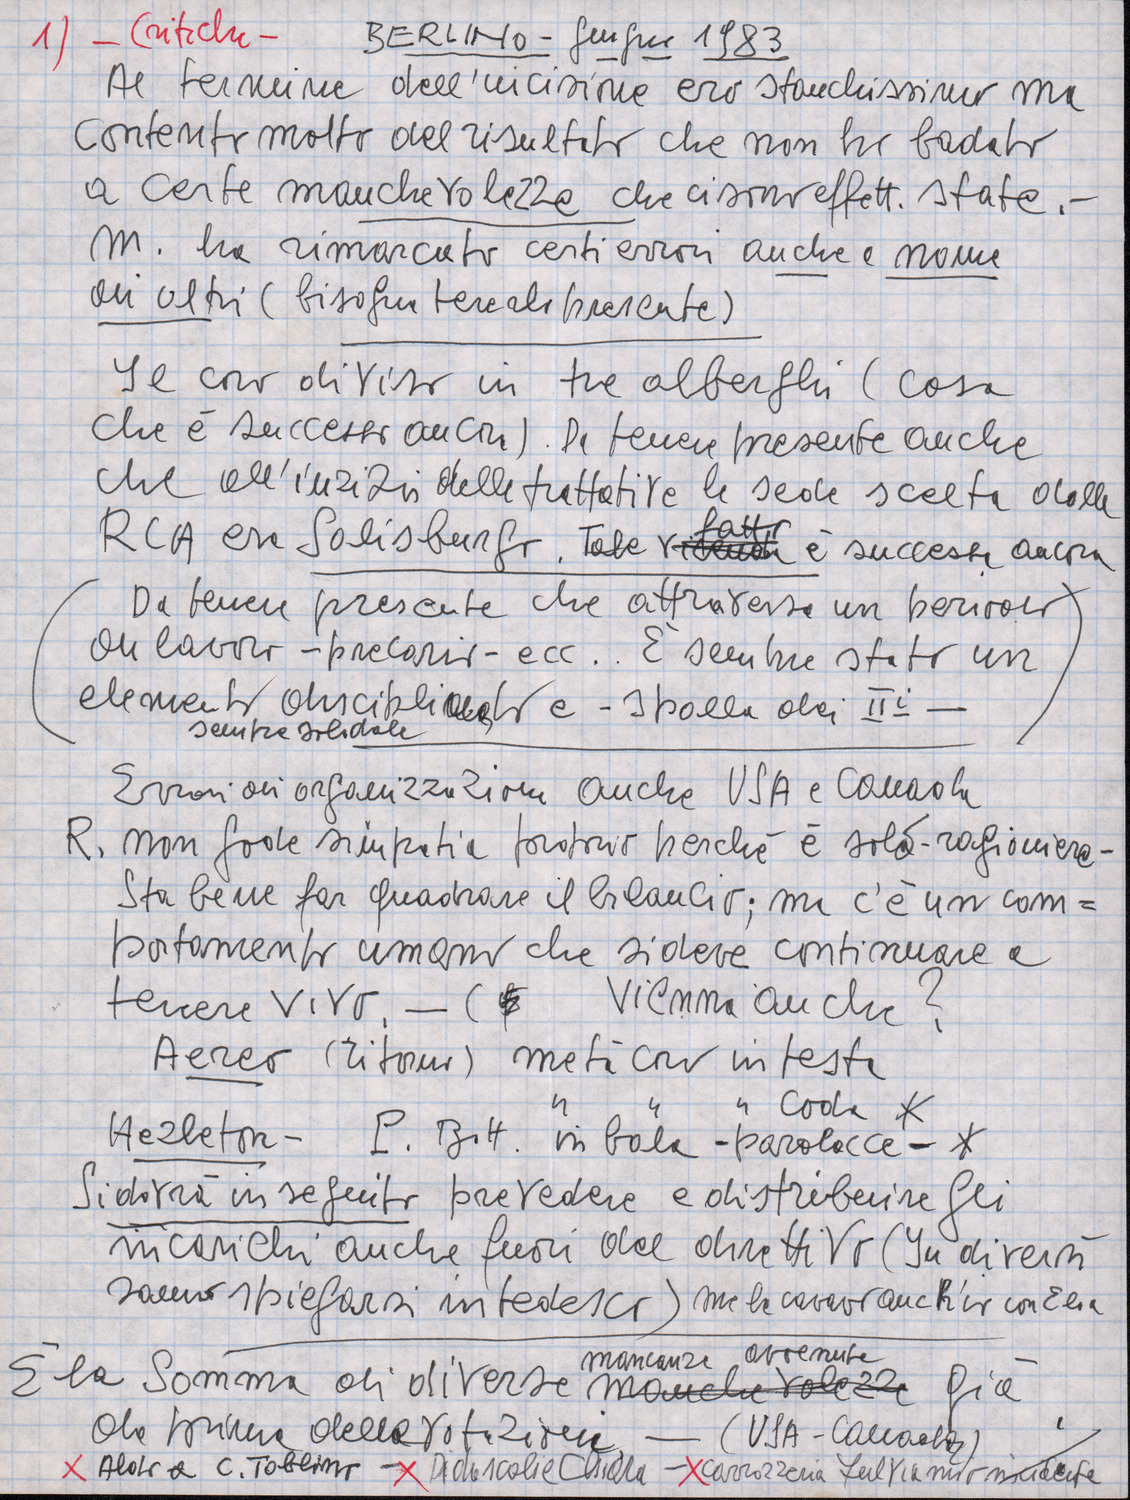 1) - Critiche -
BERLINO - giugno 1983
Al termine dell'incisione ero stanchissimo ma
contento molto del risultato che non ho badato
a certe manchevolezze che ci sono effett. state. -
M. ha rimarcato certi errori anche e nome
di altri (bisogna tenerlo presente)
Il coro diviso in tre alberghi (cosa
che è successo ancora). Da tenere presente anche
che all'inizio delle trattative la sede scelta dalla
RCA era Salisburgo. Tale fatto è successa ancora
(Da tenere presente che attraversa un periodo
di lavoro - precario - ecc.. È sempre stato un
elemento disciplinato e - spalla dei IIi -)
sempre solidale
Errori di organizzazione anche USA e Canada
R. non gode simpatia proprio perché è solo - ragioniere -
Sta bene far quadrare il bilancio; ma c'è un com=
portamento umano che si deve continuare a
tenere vivo. - ( Vienna anche?
Aereo (ritorno) metà coro in testa
" " " coda *
Hazleton - in bola - parolacce - *
Si dovrà in seguito prevedere e distribuire gli
incarichi anche fuori del direttivo (In diversi
sanno spiegarsi in tedesco) me la cavavo anch'io con Elia
mancanze avvenute
È la somma di diverse manchevolezze già
da prima della rotazione. - (USA - Canada)
x Aldo a C. Toblino - x Didascalie Chiara - x carrozzeria Fulvia